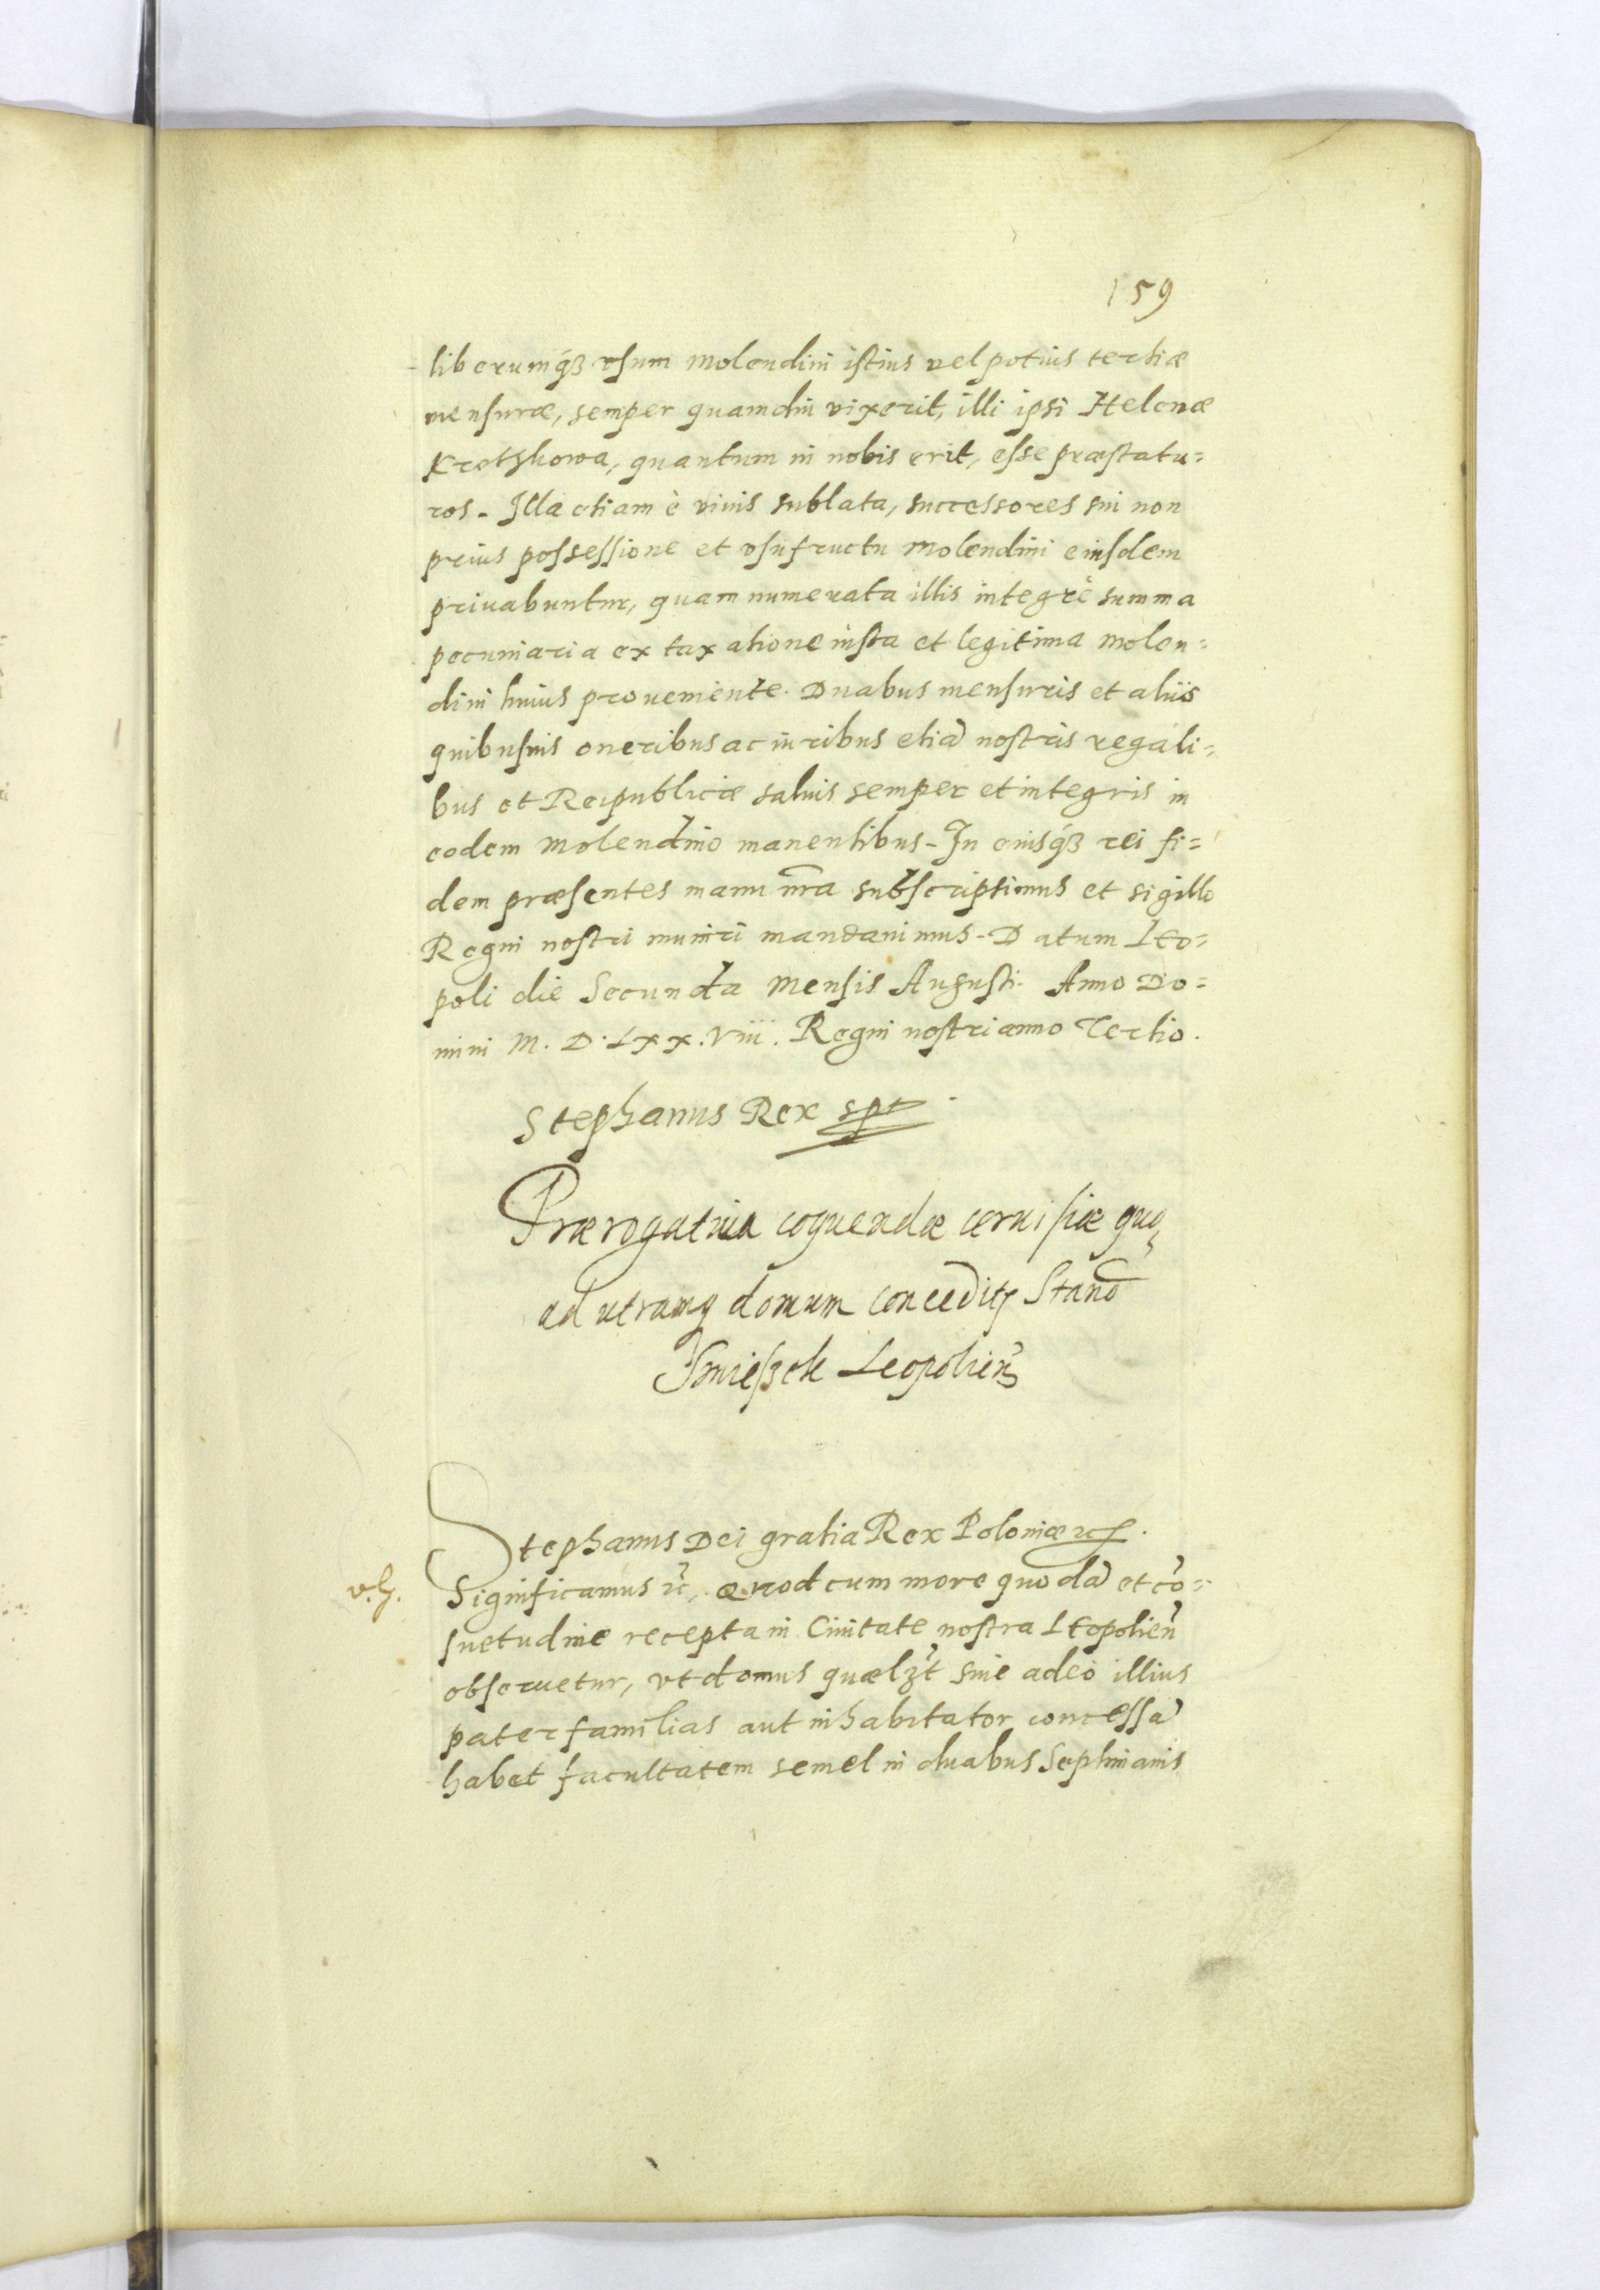 159
liberumq́ꝫ vsum molendini istius vel potius tertiæ
mensuræ, semper quamdiu vixerit, illi ipsi Helenæ
Kretzkowa, quantum in nobis erit, esse præstatu=
ros. Illa etiam è viuis sublata, successores sui non
prius possessione et vsufructu molendini eiusdem
priuabuntur, quam numerata illis integrè summa
pecuniaria ex taxatione iusta et legitima molen=
dini huius proueniente. Duabus mensuris et aliis
quibusuis oneribus ac iuribus etiã nostris regali=
bus et Reipublicæ saluis semper et integris in
eodem molendino manentibus. In cuiusq́ꝫ rei fi=
dem præsentes manu nr̃a subscripsimus et sigillo
Regni nostri muniri mandauimus. Datum Leo=
poli die Secunda mensis Augusti. Anno Do=
mini M. D. Lxx. Viii. Regni nostri anno Tertio.
Stephanus Rex spt
Prærogatiua coquendæ ceruisiæ quo
ad utramq domum conceditꝛ Stano
Leopolień
Stephanus Dei gratia Rex Poloniæ ꝛc.
Significamus ꝛc̃, Quod cum more quodã et cõ=
suetudine recepta in Ciuitate nostra Leopolień
obseruetur, vt domus quælꝫt siue adeò illius
paterfamilias aut inhabitator concessã
habet facultatem semel in duabus Septimanis